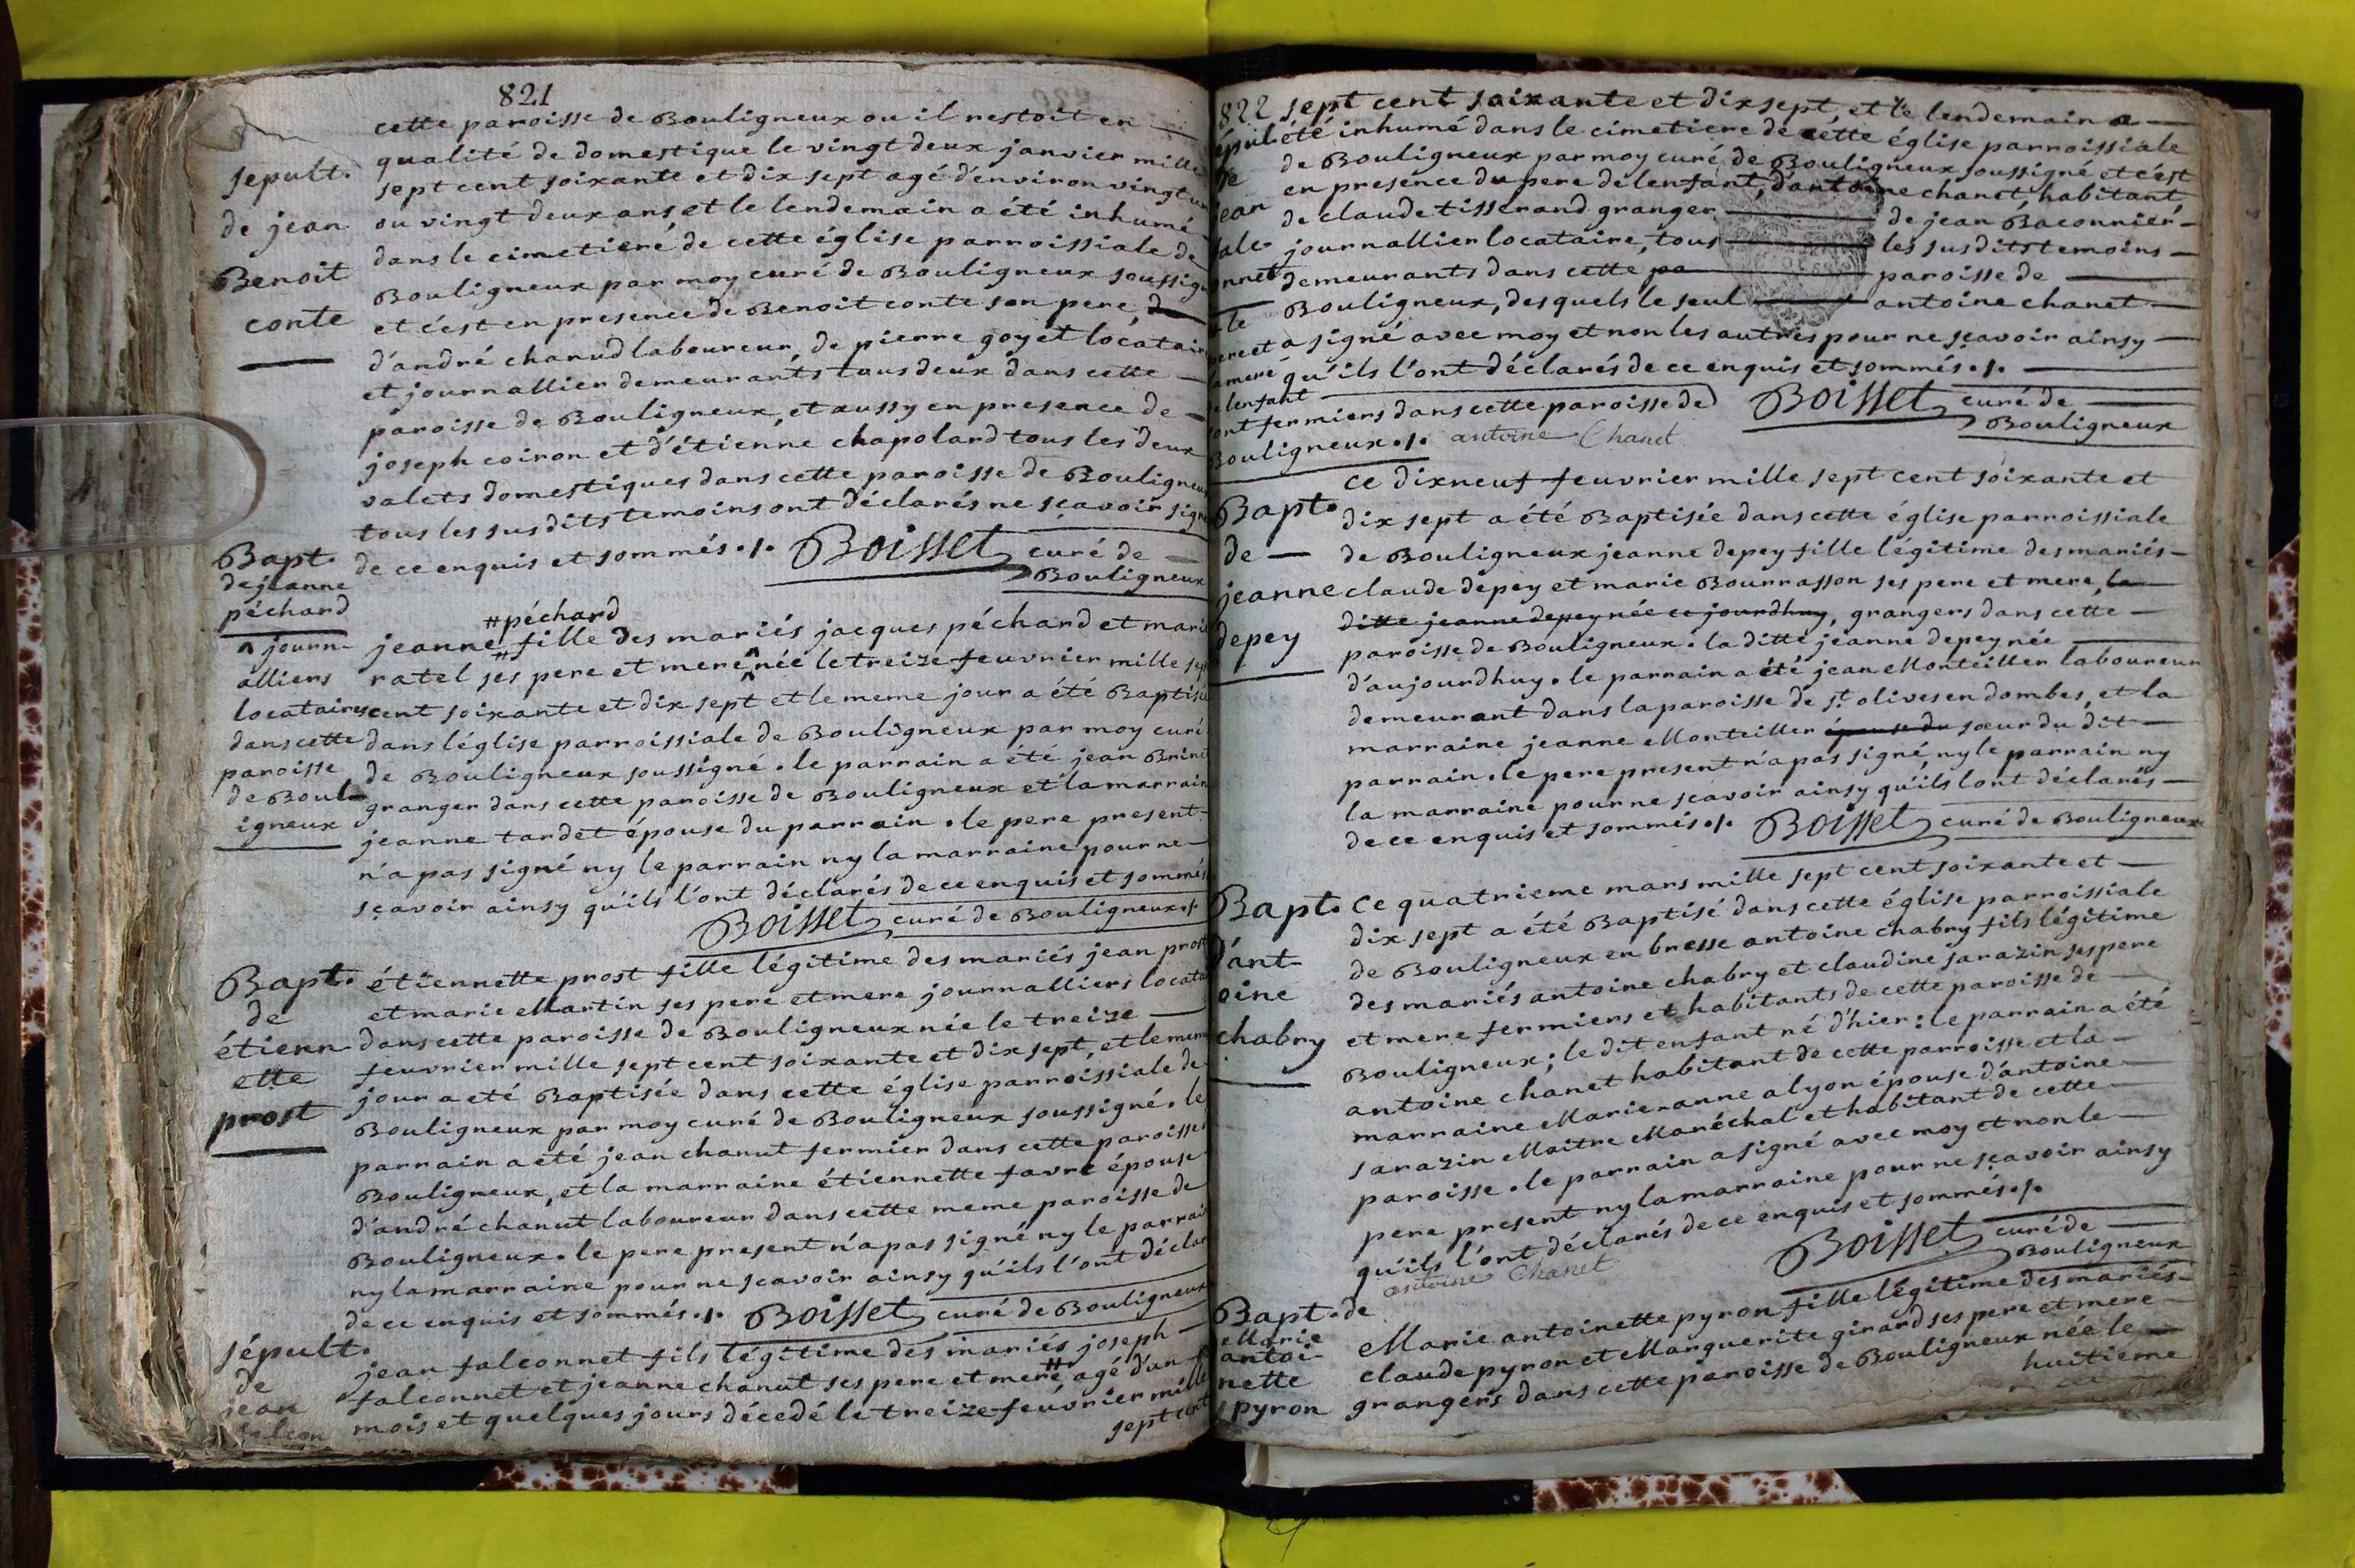 821
cette paroisse de Bouligneux ou il restoit en
qualité de domestique le vingt deux janvier mille
sept cent soixante et dix sept agé d'environ vingt un
ou vingt deux ans et le lendemain a été inhumé
dans le cimetiere de cette église parroissiale de
Bouligneux par moy curé de Bouligneux soussigné
et c'est en presence de Benoit conte son pere,
d'andré chanud laboureur, de pierre goyet locataire
et journallier demeurants tous deux dans cette
paroisse de Bouligneux, et aussy en presence de
joseph coiron et d'étienne chapolard tous les deux
valets domestiques dans cette paroisse de Bouligneux
tous les susdits temoins ont déclarés ne sçavoir signer
de ce enquis et sommés ./. Boisset curé de
Bouligneux
sepult.
de jean
Benoit
conte
Bapt.
de jeanne
péchard
# péchard
jeanne # fille des mariés jacques péchard et marie
ratel ses pere et mere ^ née le treize feuvrier mille sept
cent soixante et dix sept et le meme jour a été Baptisée
dans l'église parroissiale de Bouligneux par moy curé
de Bouligneux soussigné. le parrain a été jean Brinet
granger dans cette paroisse de Bouligneux et la marraine
jeanne tardet épouse du parrain. le pere present
n'a pas signé ny le parrain ny la marraine pour ne
sçavoir ainsy qu'ils l'ont déclarés de ce enquis et sommés
Boisset curé de Bouligneux ./.
^ journ-
alliers
locataires
dans cette
paroisse
de Boul-
igneux
Bapt.
de
étienn-
ette
prost
étiennette prost fille légitime des mariés jean prost
et marie Martin ses pere et mere journalliers locata
dans cette paroisse de Bouligneux née le treize
feuvrier mille sept cent soixante et dix sept, et le meme
jour a eté Baptisée dans cette église parroissiale de
Bouligneux par moy curé de Bouligneux soussigné. le
parrain a eté jean chanut fermier dans cette paroisse
Bouligneux, et la marraine étiennette favre épouse
d'andré chanut laboureur dans cette meme paroisse de
Bouligneux. le pere present n'a pas signé ny le parrain
ny la marraine pour ne scavoir ainsy qu'ils l'ont déclar
de ce enquis et sommés ./. Boisset curé de Bouligneux
sépult.
de
jean
falcon
jean falconnet fils légitime des mariés joseph
falconnet et jeanne chanut ses pere et mere # agé d'un
mois et quelques jours décedé le treize feuvrier mille
sept cent
822 sept cent soixante et dix sept, et le lendemain a
été inhumé dans le cimetiere de cette église parroissiale
de Bouligneux par moy curé de Bouligneux soussigné et c'est
en presence du pere de l'enfant, d'antoine chanet, habitant
de claude tisserand granger de jean Baconnier
journallier locataire, tous les susdits temoins
demeurants dans cette pa paroisse de
Bouligneux, desquels le seul antoine chanet
a signé avec moy et non les autres pour ne sçavoir ainsy
qu'ils l'ont déclarés de ce enquis et sommés ./.
épul
de
jean
falc
onnet
# le
pere et
la mere
de l'enfant
sont fermiers dans cette paroisse de
Bouligneux ./. antoine Chanet
Boisset curé de
Bouligneux
Bapt.
de
jeanne
depey
ce dixneuf feuvrier mille sept cent soixante et
dix sept a été Baptisée dans cette église parroissiale
de Bouligneux jeanne depey fille légitime des mariés
claude depey et marie Bourrasson ses pere et mere, la
ditte jeanne depey née ce jourdhuy, grangers dans cette
paroisse de Bouligneux: la ditte jeanne depey née
d'aujourdhuy. le parrain a été jean Monteiller laboureur
demeurant dans la paroisse de st. olives en dombes, et la
marraine jeanne Monteiller épouse du sœur du dit
parrain. le pere present n'a pas signé, ny le parrain ny
la marraine pour ne sçavoir ainsy qu'ils l'ont déclarés
de ce enquis et sommés ./. Boisset curé de Bouligneux
Bapt.
d'ant-
oine
chabry
ce quatrieme mars mille sept cent soixante et
dix sept a été Baptisé dans cette église parroissiale
de Bouligneux en bresse antoine chabry fils légitime
des mariés antoine chabry et claudine sarazin ses pere
et mere fermiers et habitants de cette paroisse de
Bouligneux; le dit enfant né d'hier: le parrain a été
antoine chanet habitant de cette parroisse et la
marraine Marie-anne alyon épouse d'antoine
sarazin Maitre Maréchal et habitant de cette
paroisse. le parrain a signé avec moy et non le
pere present ny la marraine pour ne sçavoir ainsy
qu'ils l'ont déclarés de ce enquis et sommés ./.
antoine Chanet
Boisset curé de
Bouligneux
Bapt. de
Marie
antoi-
nette
pyron
Marie antoinette pyron fille légitime des mariés
claude pyron et Marguerite girard ses pere et mere
grangers dans cette paroisse de Bouligneux née le
huitieme